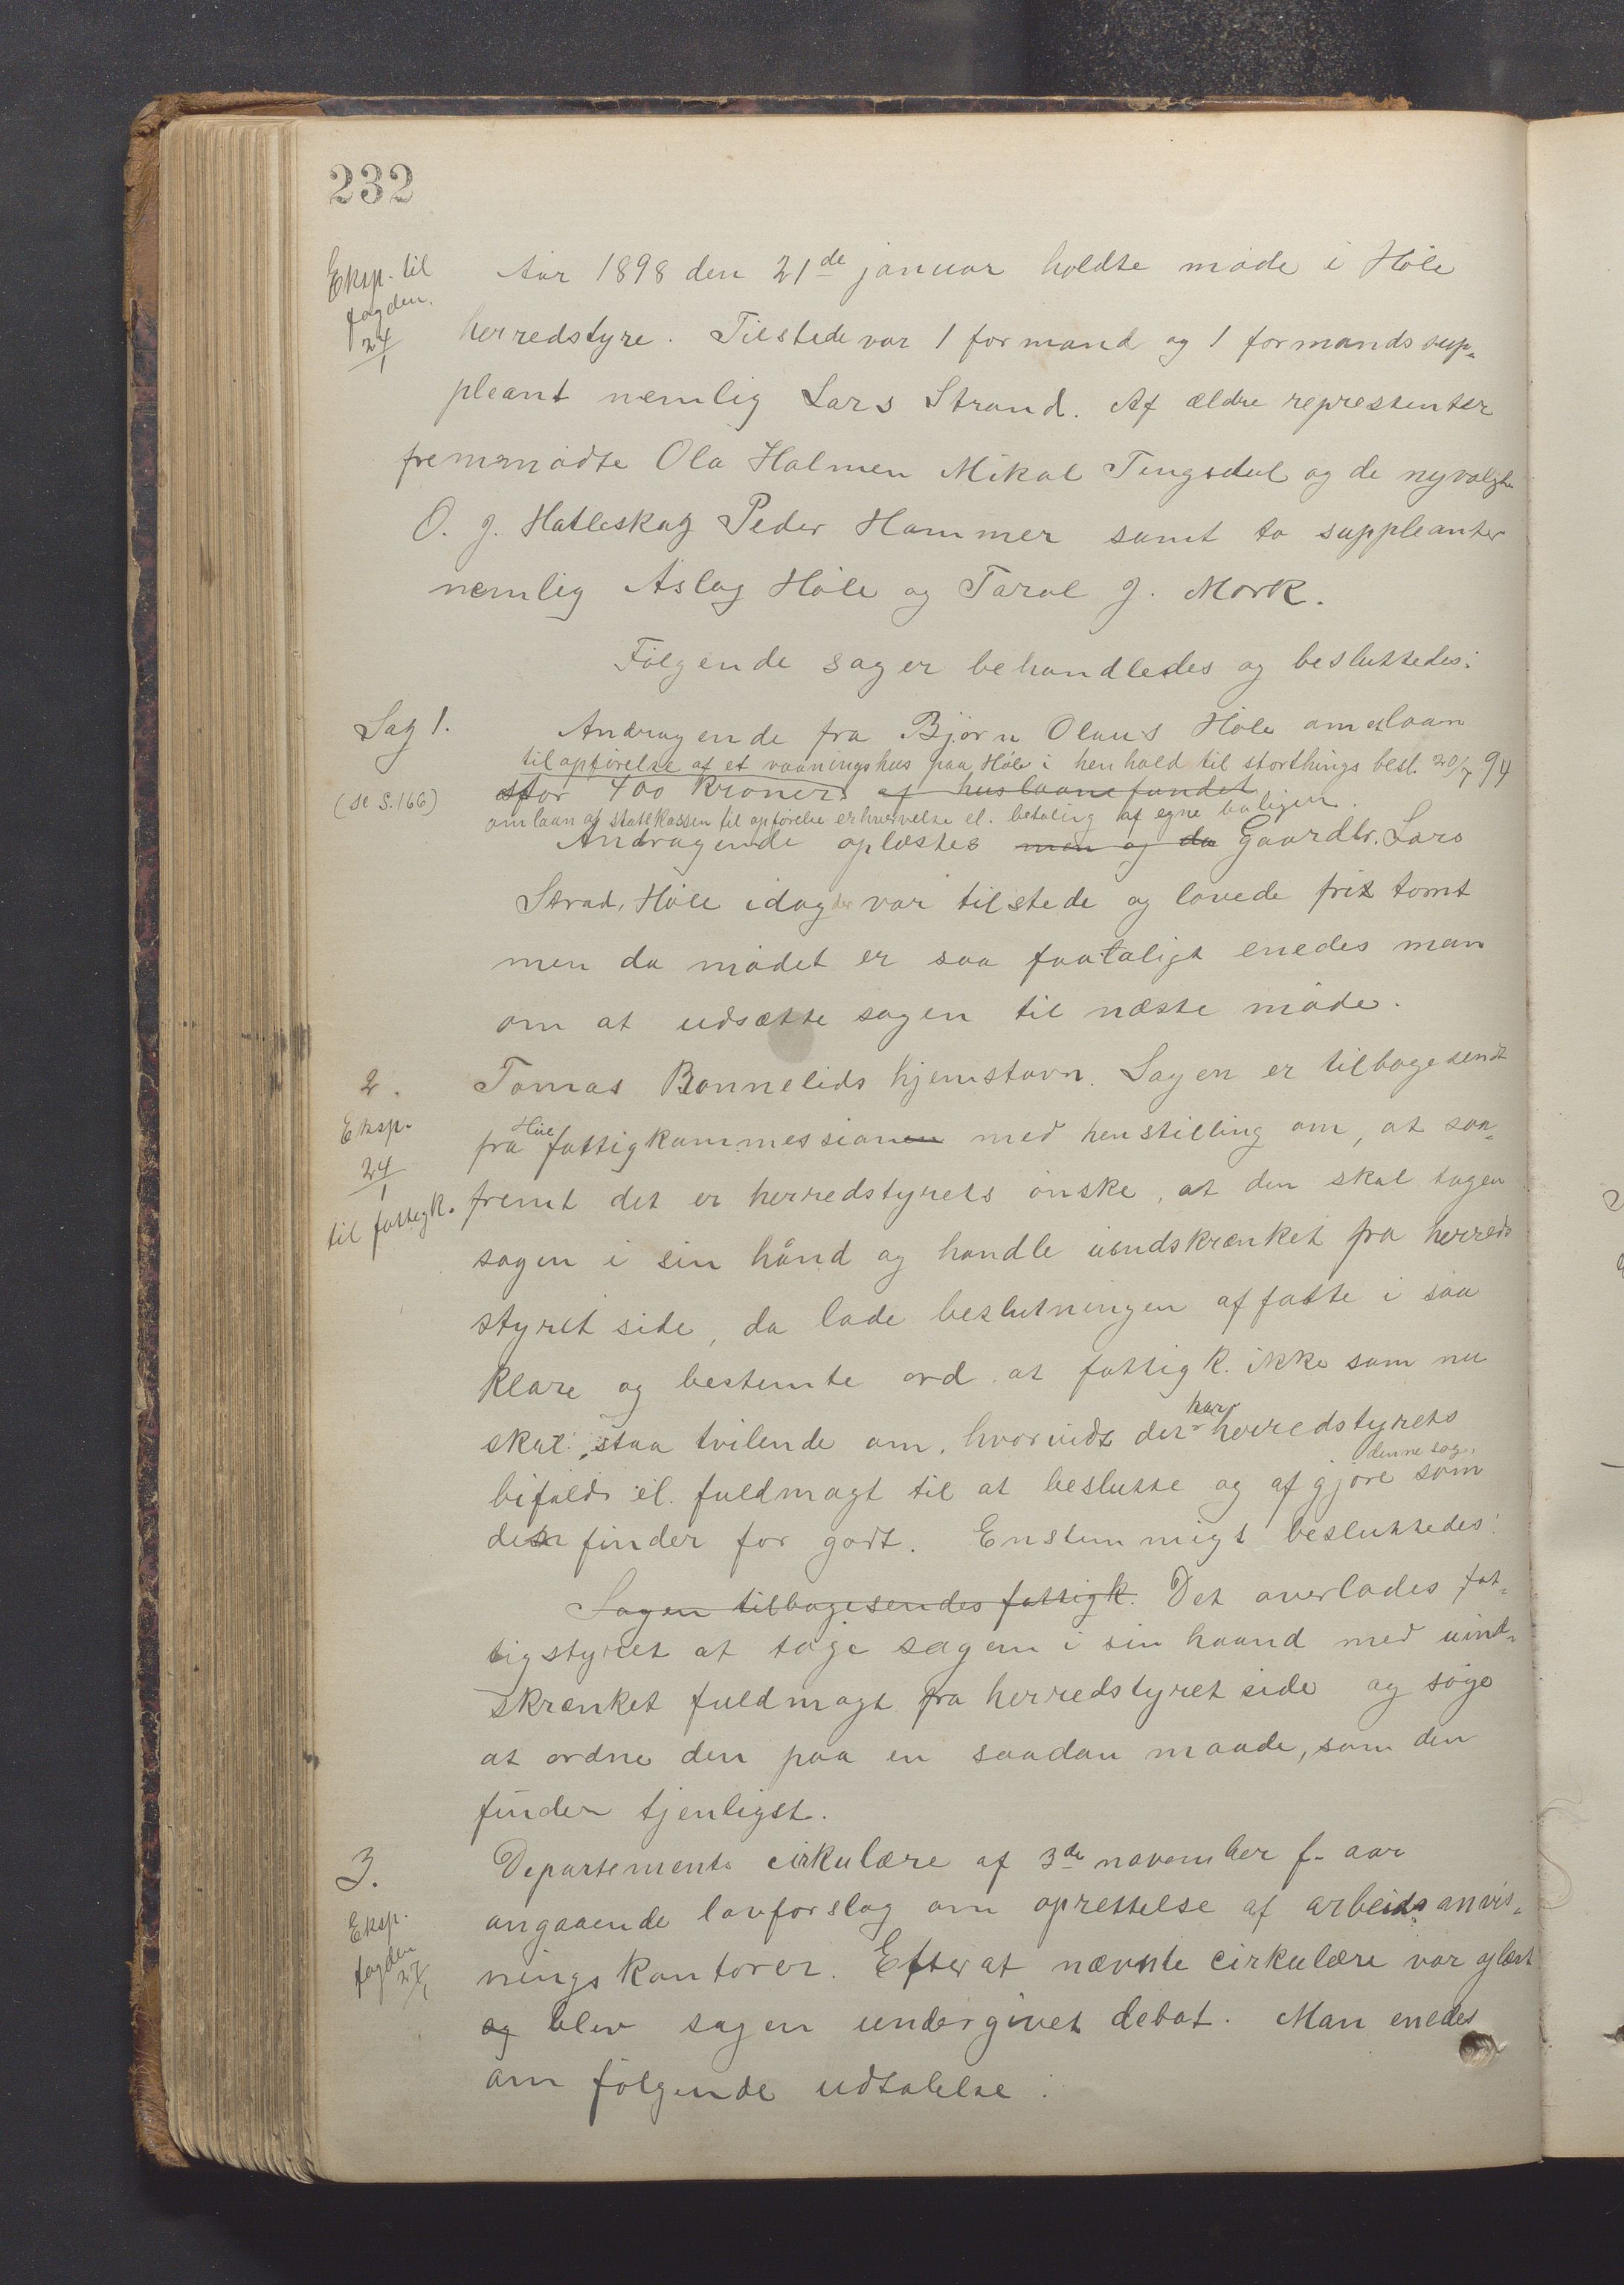 232
Eksp. til
fogden.
24/1
Aar 1898 den 21de januar holdte møde i Høle
herredstyre. Tilstede var 1 formand og 1 formands sup-
pleant nemlig Lars Strand. Af ældre representer
fremmødte Ola Halmen Mikal Tengsdal og de nyvalgte
O. J. Hatleskag Peder Hammer samt to suppleanter
nemlig Aslag Høle og Taral J. Mork.
Følgende sager behandledes og besluttedes:
Sag 1.
Andragende fra Bjørn Olaus Høle om et laan
til opførelse af et vaaningshus paa Høle i henhold til storthings besl. 20/7 94
(se S. 166)
stor 400 kroner af huslaanefondet
om laan af statskassen til opførelse erhvervelse el. betaling af egne boliger.
Andragende oplæstes men og da Gaardbr. Lars
Strad, Høle idag der var tilstede og lovede frit tomt
men da mødet er saa faataligt enedes man
om at udsætte sagen til næste møde.
2.
Eksp.
24/1
til fattigk.
Tomas Bonnelids hjemstavn. Sagen er tilbagesendt
fra Høle fattigkommessionen med henstilling om, at saa-
fremt det er herredstyrets ønske, at den skal tagen
sagen i sin hånd og handle uindskrænket fra herreds
styret side, da lade beslutningen affatte i saa
klare og bestemte ord at fattigk. ikke som nu
skal staa tvilende om, hvorvidt der har herredstyrets
bifald el. fuldmagt til at beslutte og afgjøre denne sag, som
den finder for godt. Enstemmigt besluttedes:
Sagen tilbagesendes fattigk. Det overlades fat-
tigstyret at tage sagen i sin haand med uind-
skrænket fuldmagt fra herredstyret side og søge
at ordne den paa en saadan maade, som den
finder tjenligst.
3.
Eksp.
fogden
24/1
Departements cirkulære af 3de november f. aar
angaaende lovforslag om oprettelse af arbeids anvis-
nings kontorer. Efter at nævnte cirkulære var oplæst
og blev sagen undergivet debat. Man enedes
om følgende udtalelse: